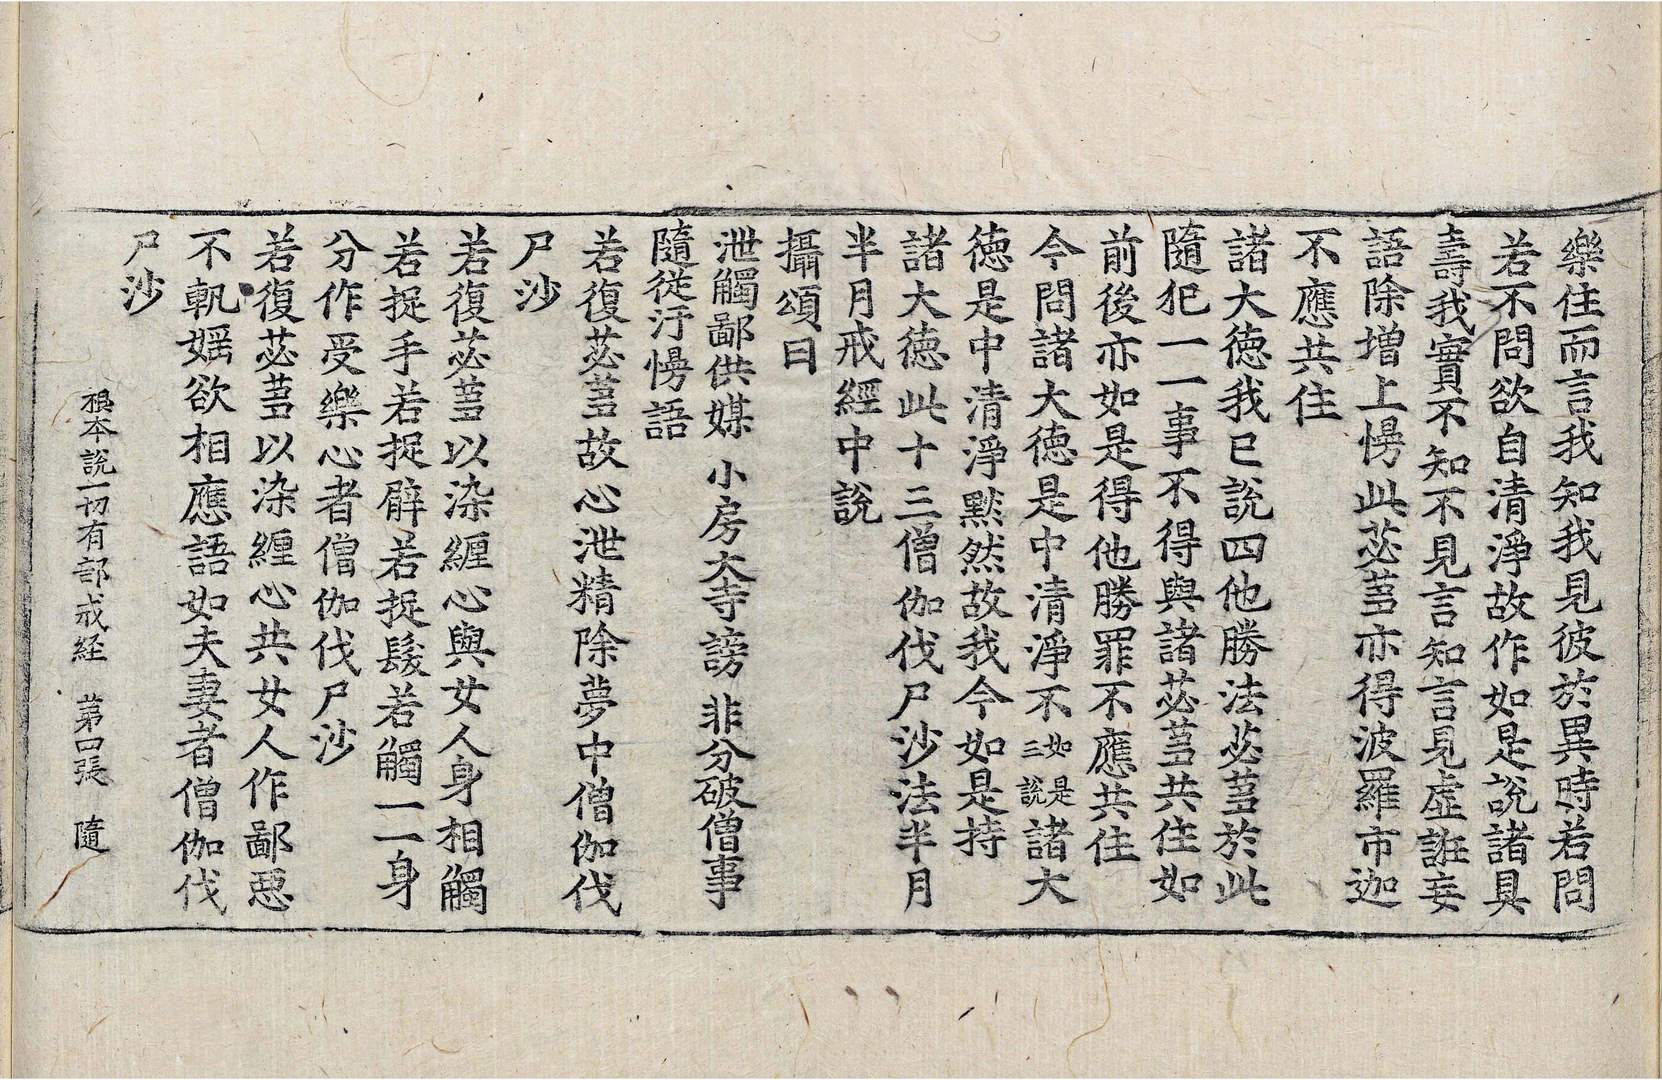 樂住而言我知我見彼於異時若問
若不問欲自清淨故作如是說諸具
壽我實不知不見言知言見虛誑妄
語除增上慢此苾芻亦得波羅市迦
不應共住
諸大德我已說四他勝法苾芻於此
隨犯一一事不得與諸苾芻共住如
前後亦如是得他勝罪不應共住
今問諸大德是中清淨不如是三說諸大
德是中清淨默然故我今如是持
諸大德此十三僧伽伐尸沙法半月
半月戒經中說
攝頌曰
泄觸鄙供媒 小房大寺謗 非分破僧事
隨從汙慢語
若復苾芻故心泄精除夢中僧伽伐
尸沙
若復苾芻以染纏心與女人身相觸
若捉手若捉臂若捉髮若觸一一身
分作受樂心者僧伽伐尸沙
若復苾芻以染纏心共女人作鄙惡
不軌婬欲相應語如夫妻者僧伽伐
尸沙
根本說一切有部戒経 第四張 隨